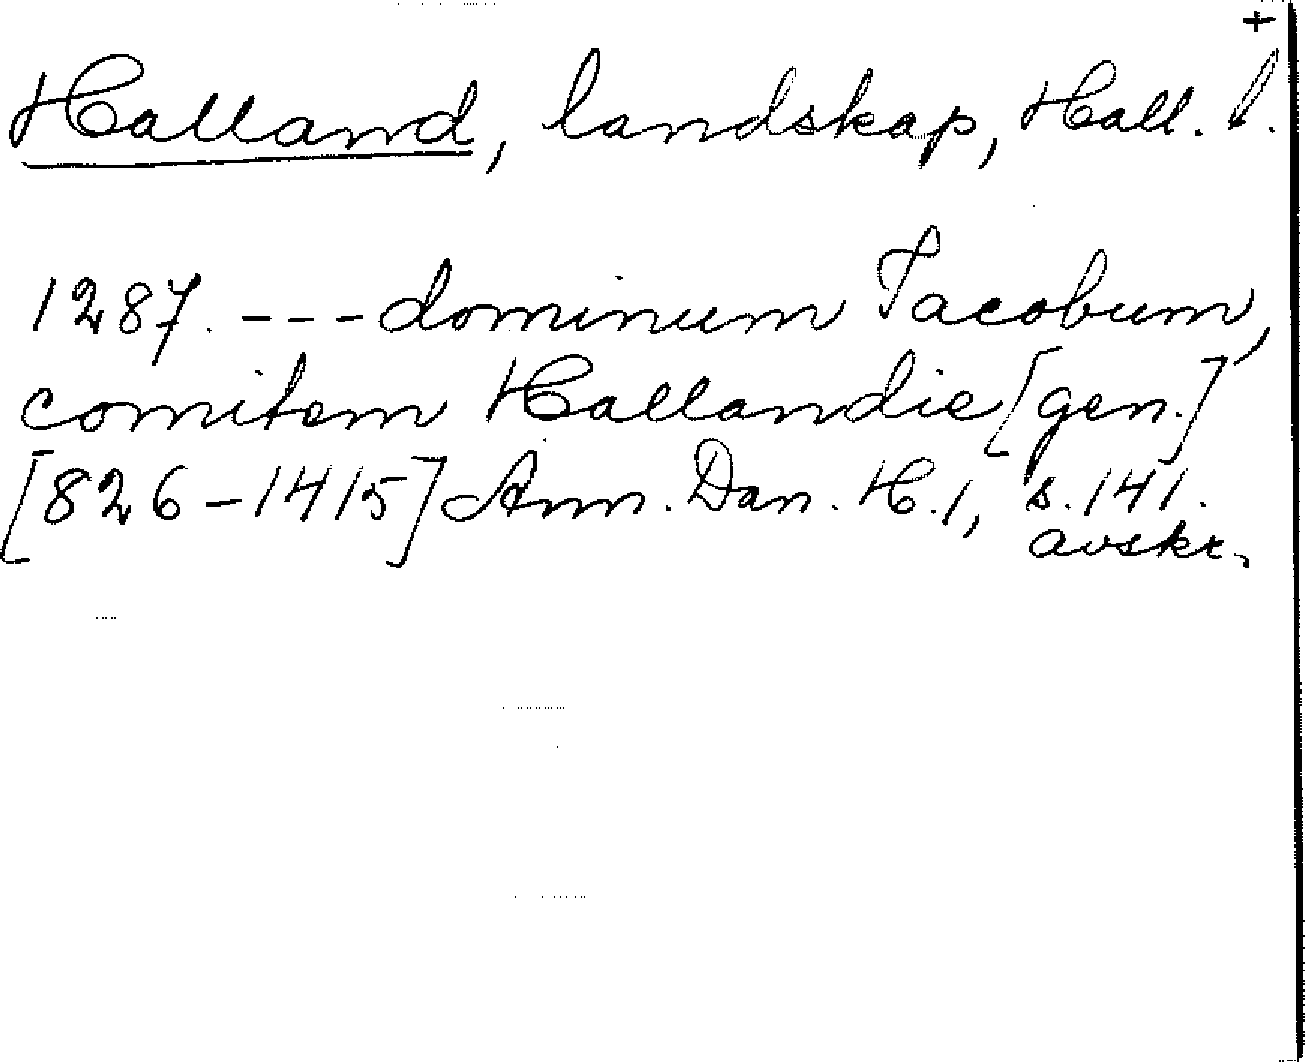 +
Halland, landskap, Hall. l.
1287. --- dominum Jacobum,
comitem Hallandie [gen.]
[826-1415] Ann. Dan. H. 1, s. 141.
avskr.